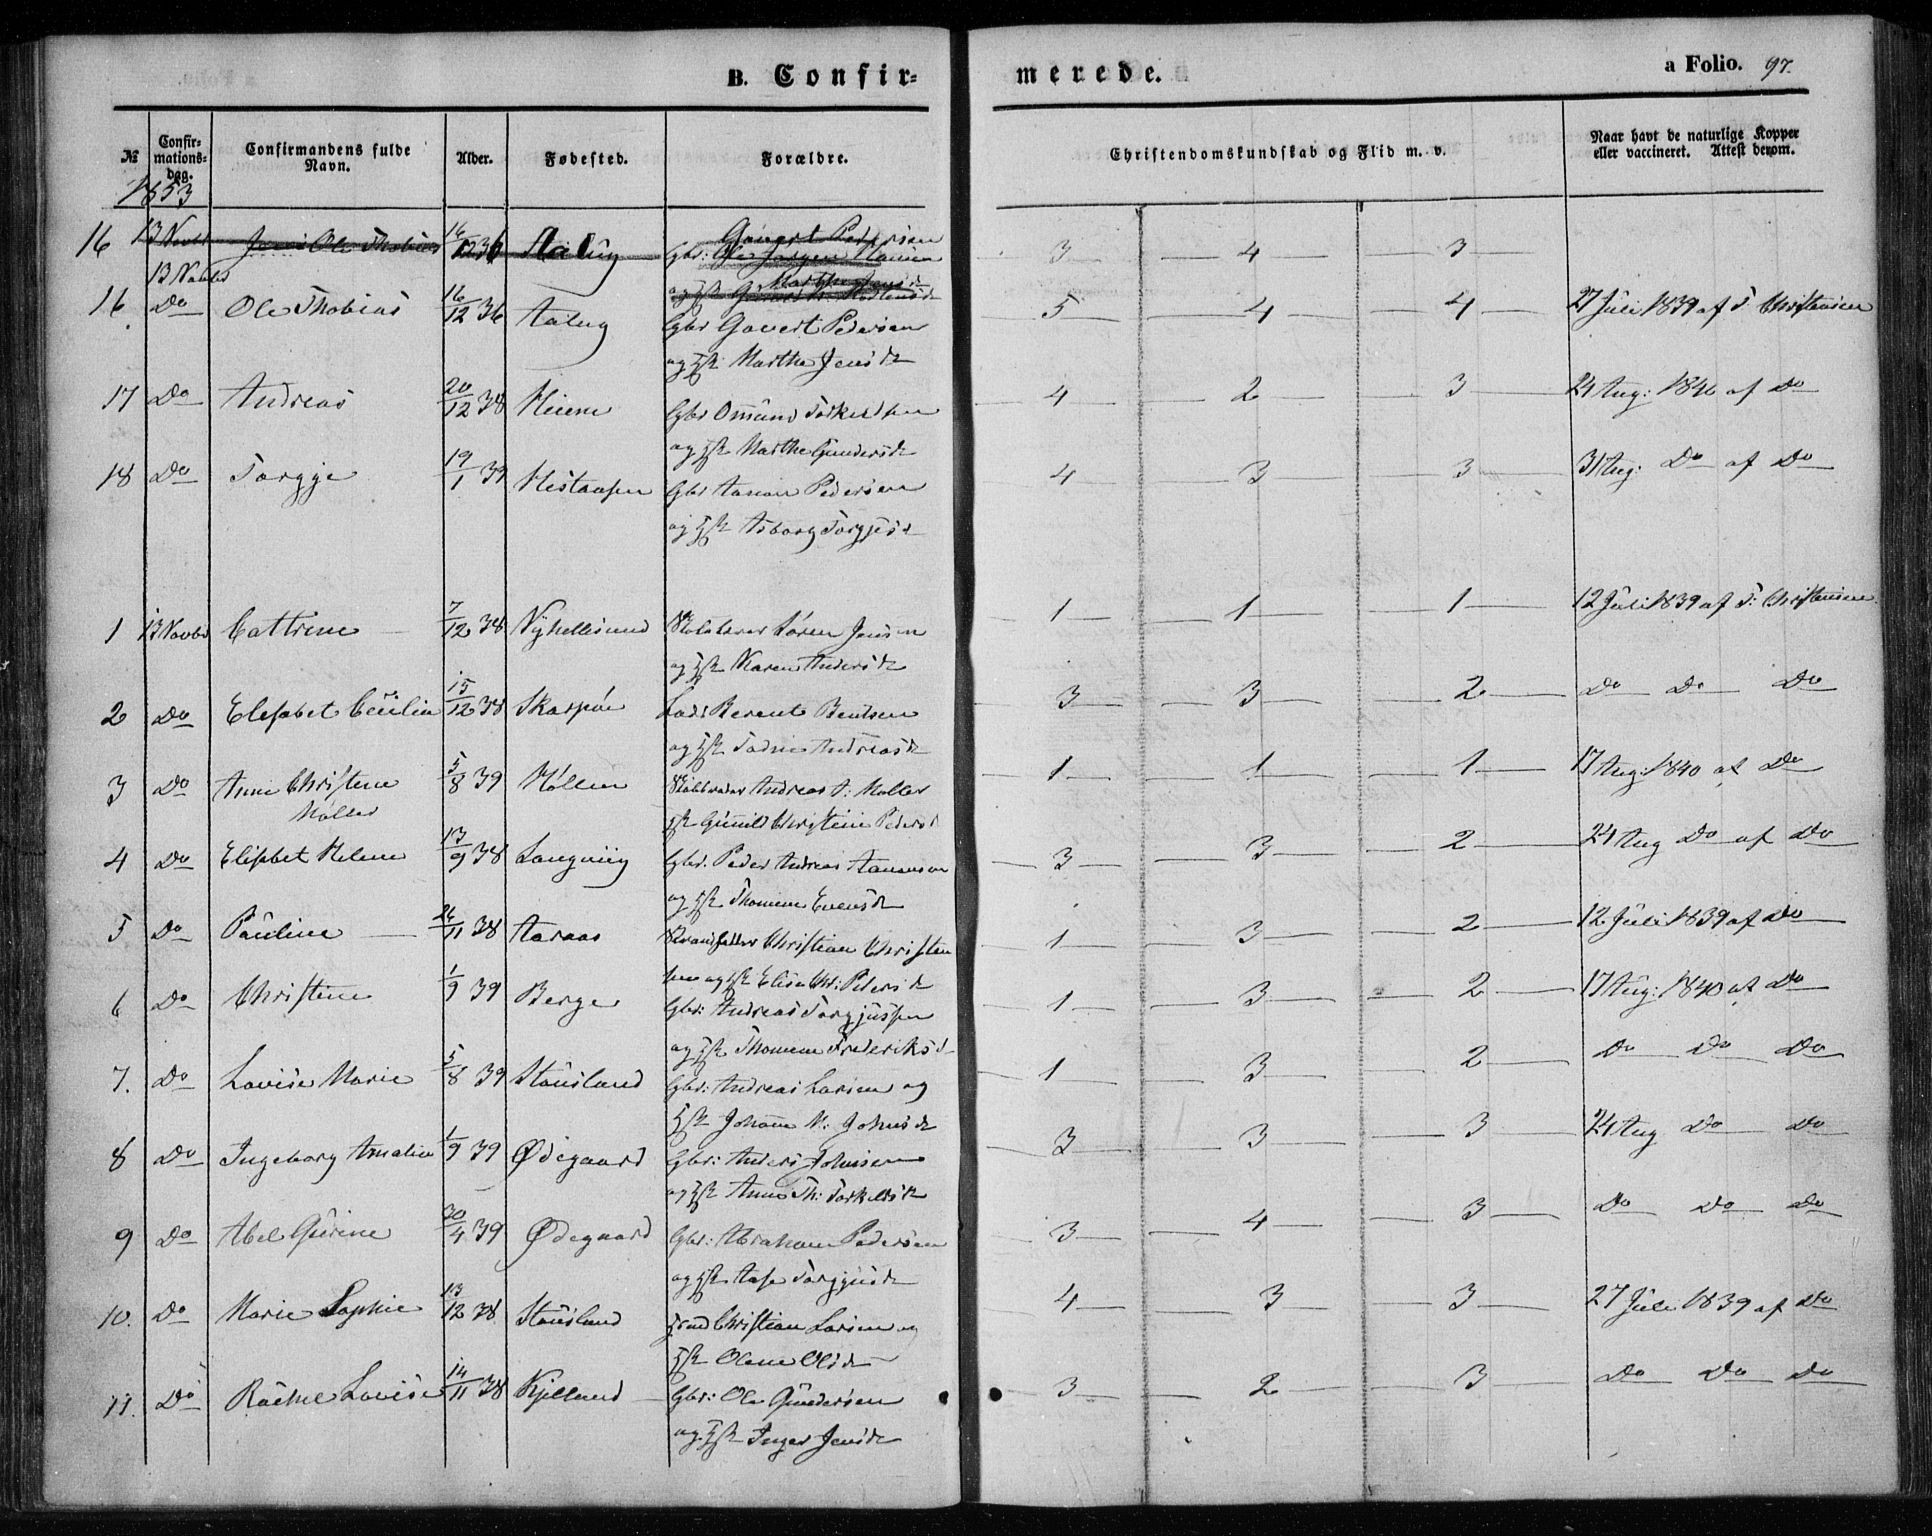 B. Confir=
merede.
a Folio. 97.
№
Confir-
mations-
dag.
Confirmandens fulde
Navn.
Alder.
Fødested.
Forældre.
Christendomskundskab og Flid m. v.
Naar havt de naturlige Kopper
eller vaccineret. Attest derom.
1853
16 13 Novbr Ole Thobias 16/12 36 3 4 3
Govert Pedersen
13 Novbr
Marthe Jensd
16. Do Ole Thobias 16/12 36 Aalug Gbr Govert Pedersen 5 4 4 27 Juli 1839 af T. Christensen
og Hst Marthe Jensd
17 Do Andreas 20/12 38 Heiem Gbr Omund Torkeldsen 4 2 3 24 Aug: 1840 af Do
og Hst Marthe Gundersd
18 Do Torgje 19/1 39 Gbr Aanon Pedersen 4 3 3 31 Aug: Do af Do
og Hst Asborg Torgjesd
1 13 Novbr Cattrine 7/12 38 Nyhellesund Søren Jensen 1 1 1 12 Juli 1839 af T: Christensen
og Hst Karen Andersd
2 Do Elisabet Cecilia 15/12 38 Skarpøe Lods Berent Bentsen 3 3 2 Do Do Do
og Hst Andreasd
3 Do Anne Christine 5/8 39 Høllen Andreas Møller 1 1 1 17 Aug: 1840 af Do
Møller
Hst Gunild Christine Pedersd
4 Do Elisabet Helene 13/9 38 Langviig Gbr. Peder Andreas Aanensen 3 3 2 24 Aug Do af Do
og Hst Thomine Evensd
5 Do Pauline 26/11 38 Aaraas Strandsidder Christian Christen 1 3 2 12 Juli 1839 af Do
sen og Hst Elise Chr: Pedersd
6 Do Christine 1/9 39 Berge Gbr: Andreas Torgjussen 1 3 2 17 Aug: 1840 af Do
og Hst Thomine Frederiksd
7. Do Lovise Marie 5/8 39 Stausland Gbr: Andreas Larsen og 1 3 2 Do Do Do
Hst Johane M: Johnsd
8 Do Ingeborg Amalia 1/9 39 Ødegaard Gbr: Anders Johnsen 3 3 3 24 Aug Do Do
og Hst Anne Th: Torkelsd
9 Do Abel Gurine 30/4 39 Ødegaard Gbr: Abraham Pedersen 3 4 3 Do Do Do
og Hst Aase Torgjusd
10. Do Marie Sophie 13/12 38 Stausland Christian Larsen og 4 3 3 27 Juli 1839 af Do
Hst Olene Olsd
11. Do Rachel Lovise 14/11 38 Kjelland Gbr: Ole Gundersen 3 2 3 Do Do Do
og Hst Inger Jensd